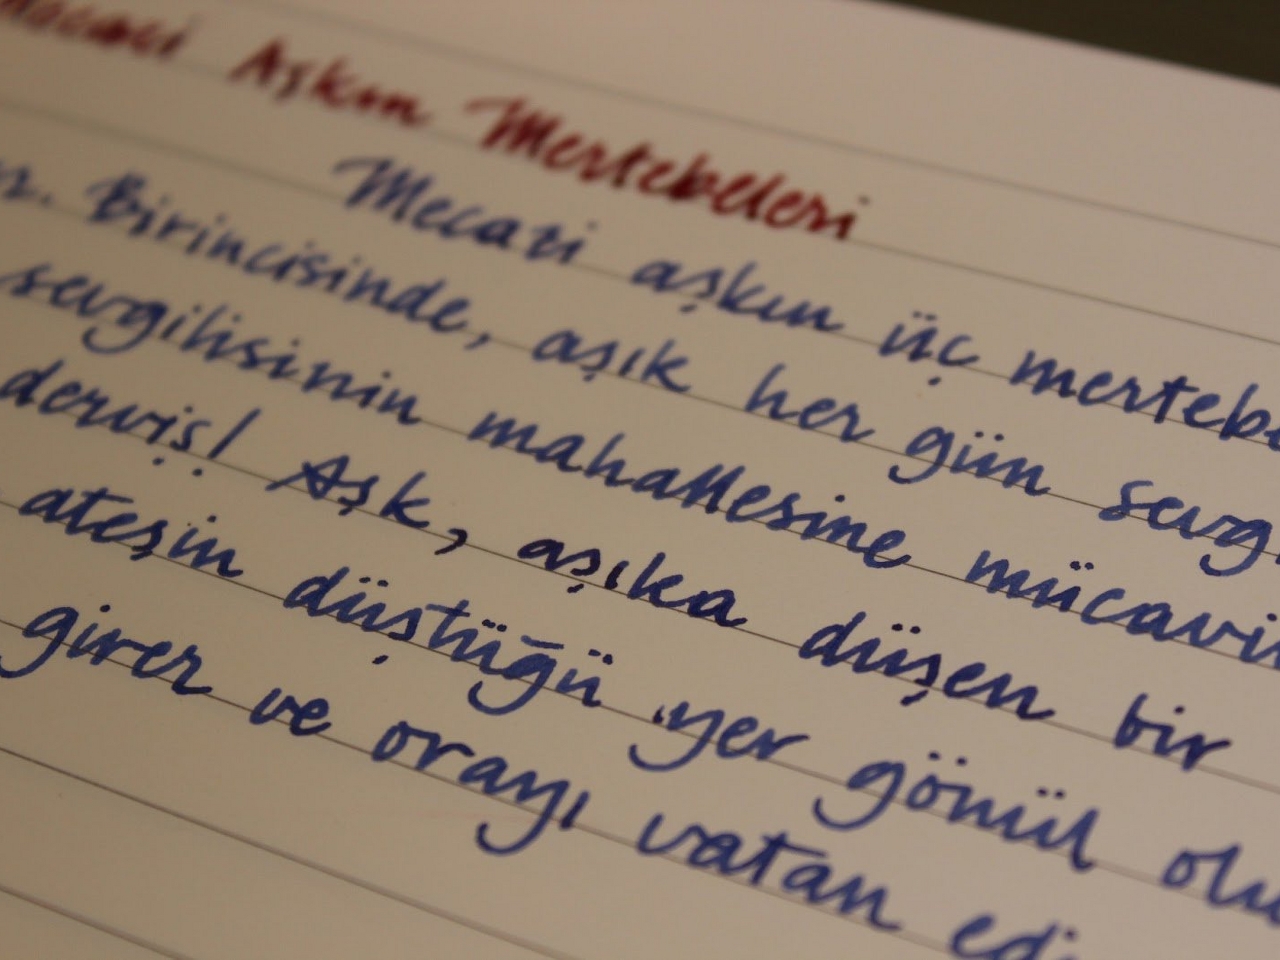 Mecazi Aşkın Mertebeleri
Mecazi aşkın üç mertebe
Birincisinde, aşık her gün sevg
sevgilisinin mahallesine mücavi
derviş! Aşk, aşıka düşen bir
ateşin düştüğü yer gönül olu
girer ve orayı vatan edi